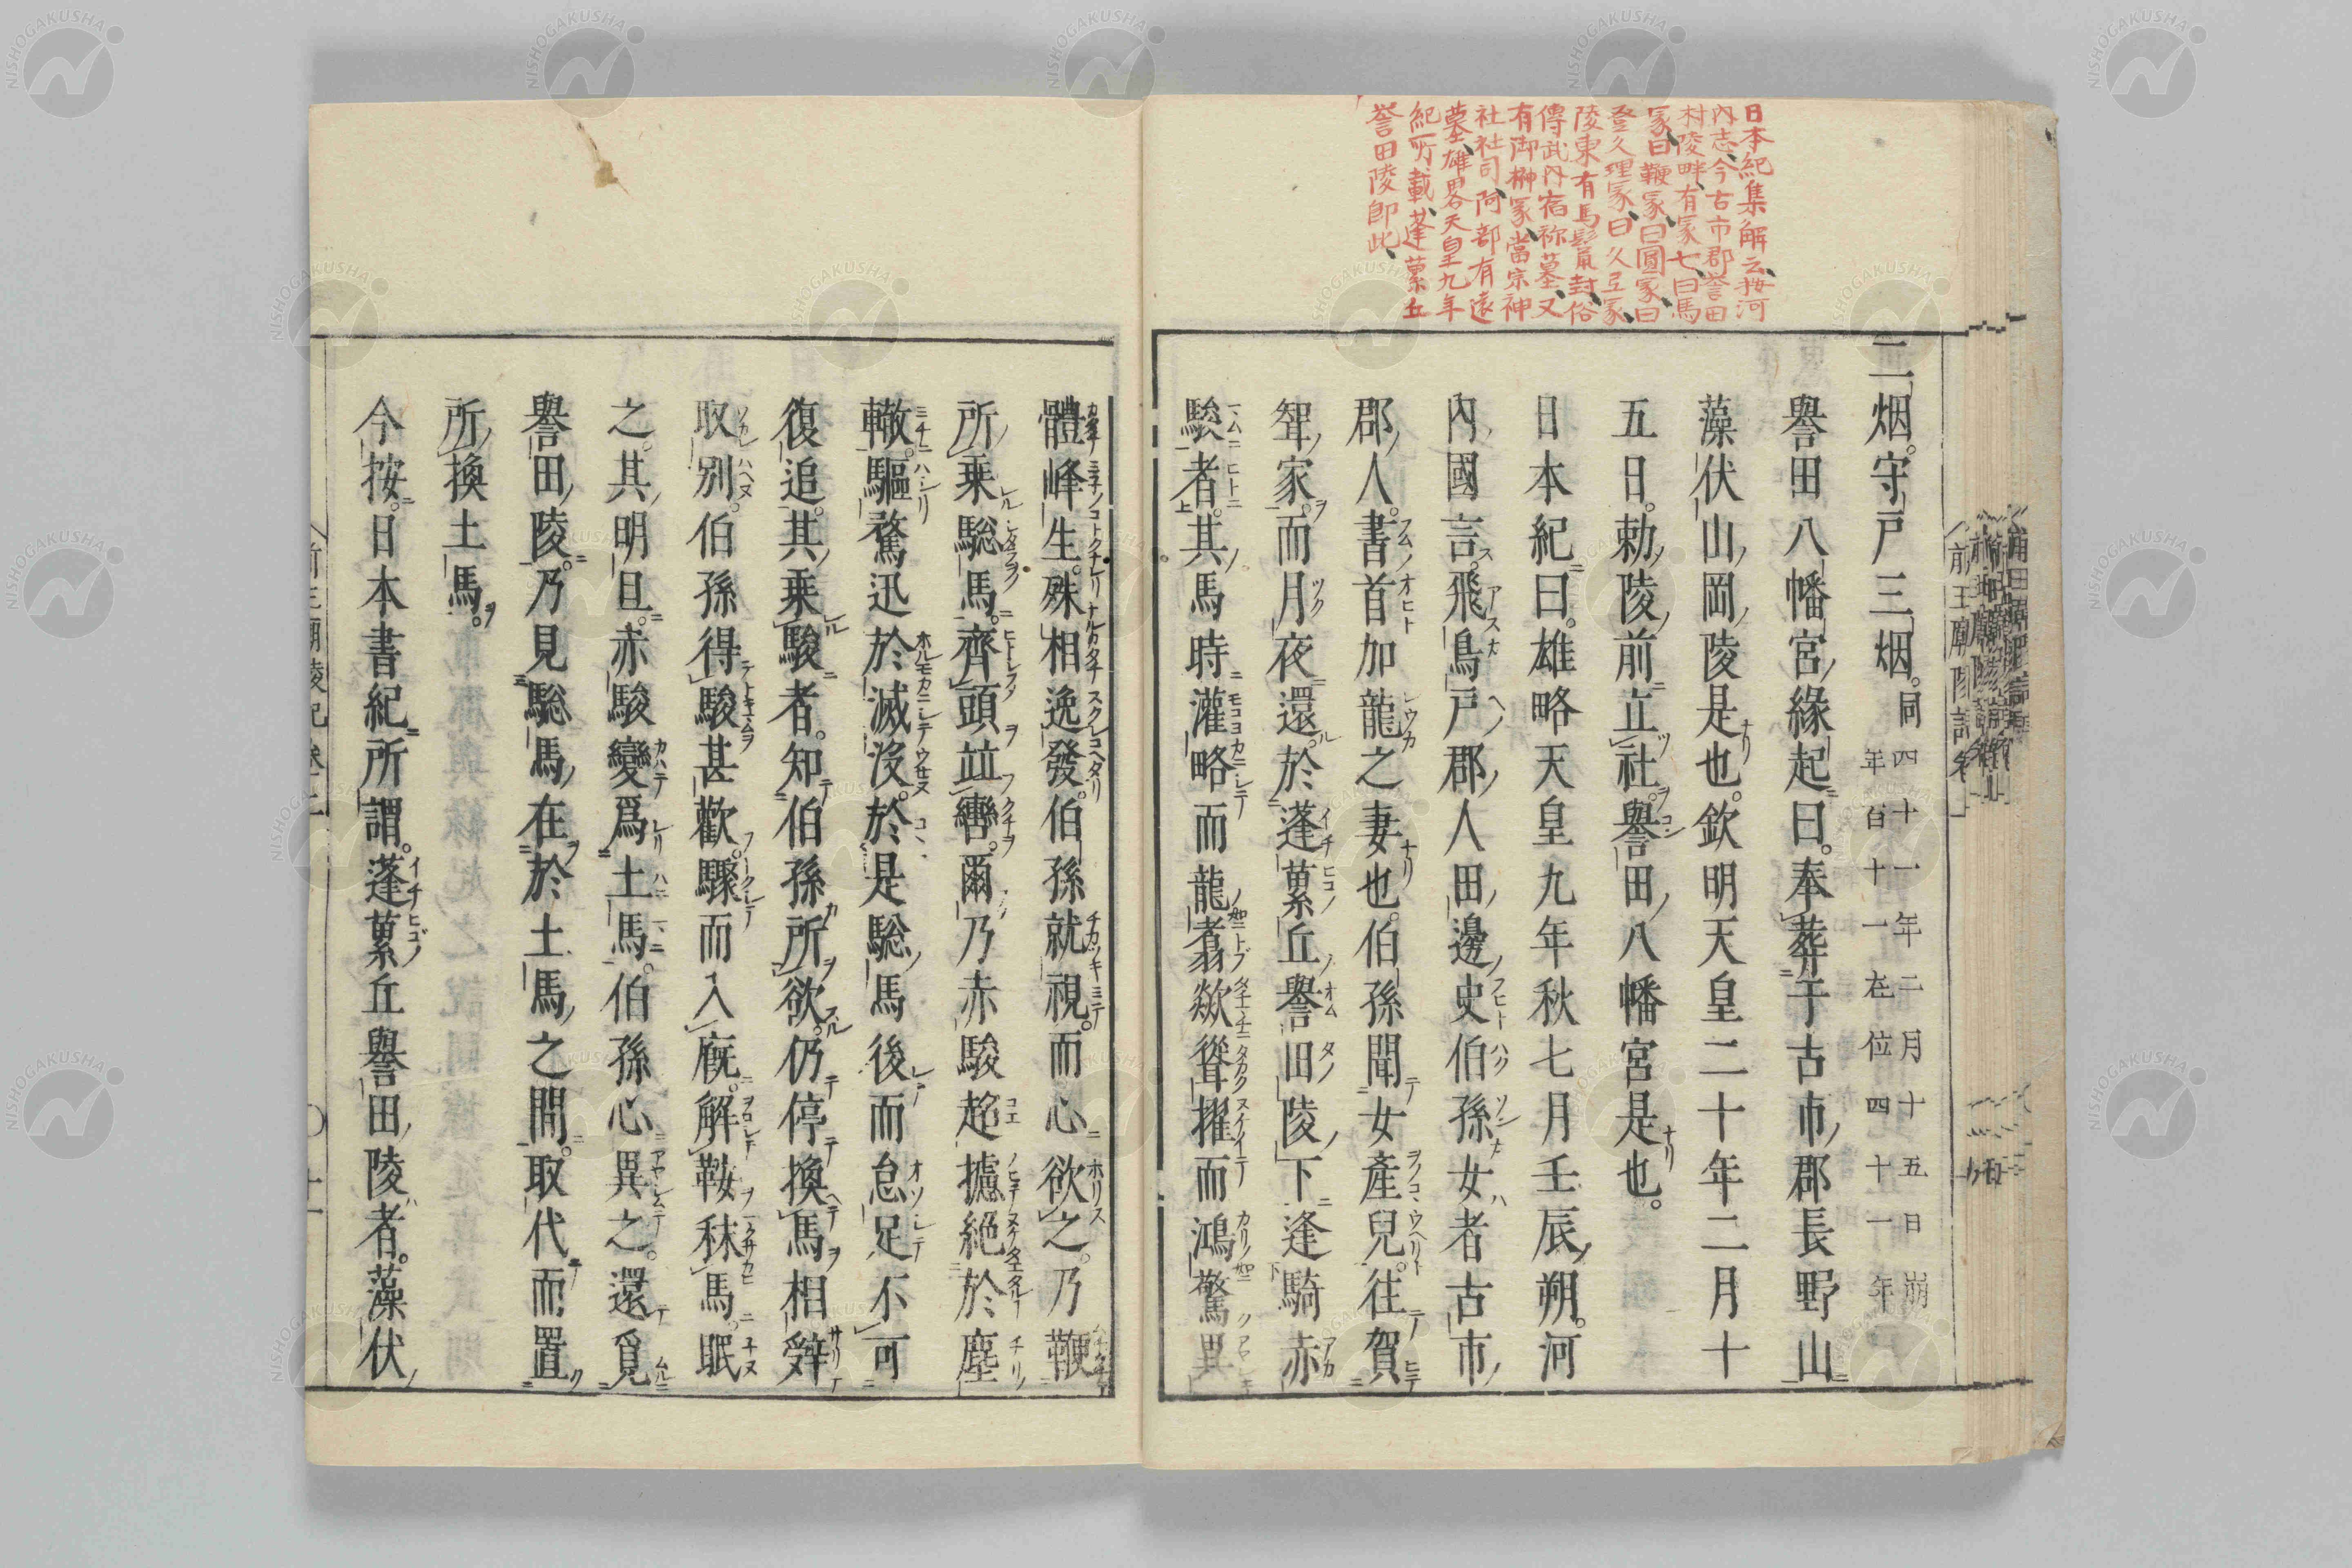 日本紀集解云按河
内志今古市郡誉田
村陵畔有冢七曰馬
冢曰鞭冢曰圓冢曰
登久理冢曰久豆冢
陵東有馬鬣封俗
傳武内宿祢墓又
有御榊冢當宗神
社社司阿部有遠
墓雄畧天皇九年
紀所載蓬蔂丘
誉田陵即此
二烟。守戸三烟。同四十一年二月十五日崩年百十一在位四十一年
譽田八幡宮緣起曰。奉葬于古市郡長野山
藻伏山岡陵是也。欽明天皇二十年二月十
五日。勅陵前立社。譽田八幡宮是也。
日本紀曰。雄略天皇九年秋七月壬辰朔。河
內國言。飛鳥戸郡人田邊史伯孫女者古市
郡人。書首加龍之妻也。伯孫聞女産兒。往賀
聟家。而月夜還於蓬蔂丘譽田陵下逢騎赤
駿者。其馬時灌略而龍翥欻聳擢而鴻驚異
體峰生。殊相逸發。伯孫就視。而心欲之。乃鞭
所乗驄馬。齊頭竝轡。爾乃赤駿超攄絕於塵
轍。驅騖迅於滅沒。於是驄馬後而怠足不可
復追。其乗駿者。知伯孫所欲。仍停換馬相辤
取別。伯孫得駿甚歡。驟而入廐。解鞍秣馬。眠
之。其明旦。赤駿變爲土馬。伯孫心異之。還覓
譽田陵。乃見驄馬在於土馬之間。取代而置
所換土馬。
今按。日本書紀所謂。蓬蔂丘譽田陵者。藻伏
前王廟陵記 卷上
十一
NISHOGAKUSHA